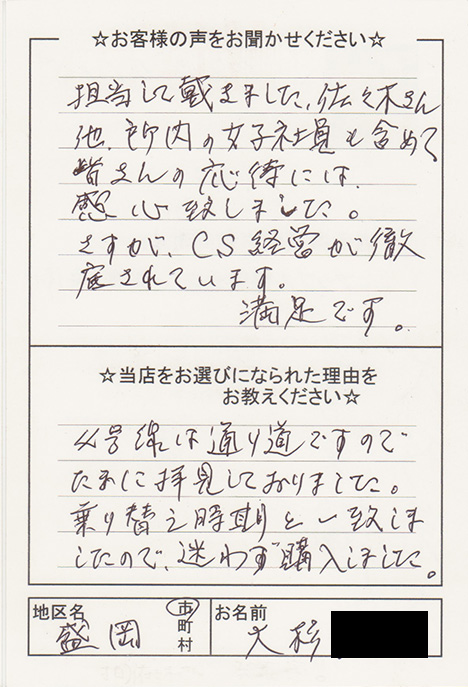 ☆お客様の声をお聞かせください☆
担当して戴きました、佐々木さん
他、所内の女子社員も含めて
皆さんの応待には、
感心致しました。
さすが、CS経営が徹
底されています。
満足です。
☆当店をお選びになられた理由を
お教えください☆
4号線は通り道ですので
たまに拝見しておりました。
乗り替え時期と一致しま
したので、迷わず購入しました。
地区名 盛岡 市町村 お名前 大杉